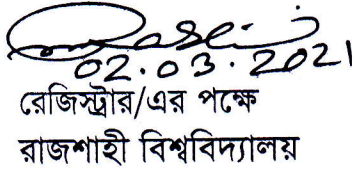 02.03.2021
রেজিস্ট্রার/এর পক্ষে
রাজশাহী বিশ্ববিদ্যালয়